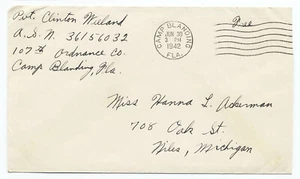 Pvt. Clinton Wieland
A.S.N. 36156032
107th Ordnance Co.
Camp Blanding, Fla.
CAMP BLANDING
JUN 30
3 PM
1942
FLA.
Free
Miss Hanna L. Ackerman
708 Oak St.
Niles, Michigan